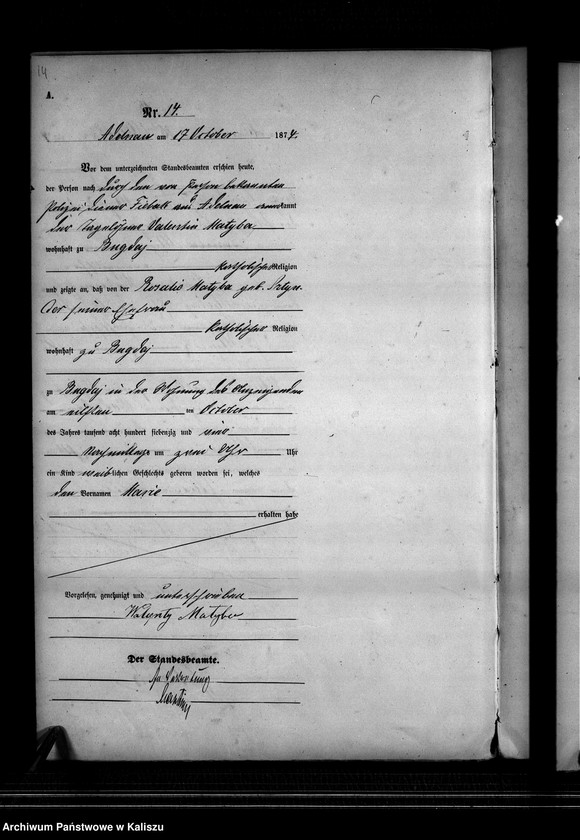 14
A.
Nr. 14.
Adelnau am 17 October 1874.
Vor dem unterzeichneten Standesbeamten erschien heute,
der Person nach durch den von Person bekannten
Polizei diener aus Adelnau erkannt
der Tagelöhner Valentin Matyba
wohnhaft zu Bugdaj
katholischer Religion
und zeigte an, daß von der Rosalie Matyba geb.
seiner Ehefrau
katholischer Religion
wohnhaft zu Bugdaj
zu Bugdaj in der Wohnung des Anzeigenden
am eilften ten October
des Jahres tausend acht hundert siebenzig und vier
Nachmittags um zwei Uhr Uhr
ein Kind weiblichen Geschlechts geboren worden sei, welches
den Vornamen Marie
erhalten habe
Vorgelesen, genehmigt und unterschrieben
Walenty Matyba
Der Standesbeamte.
In Vertretung
Archiwum Państwowe w Kaliszu